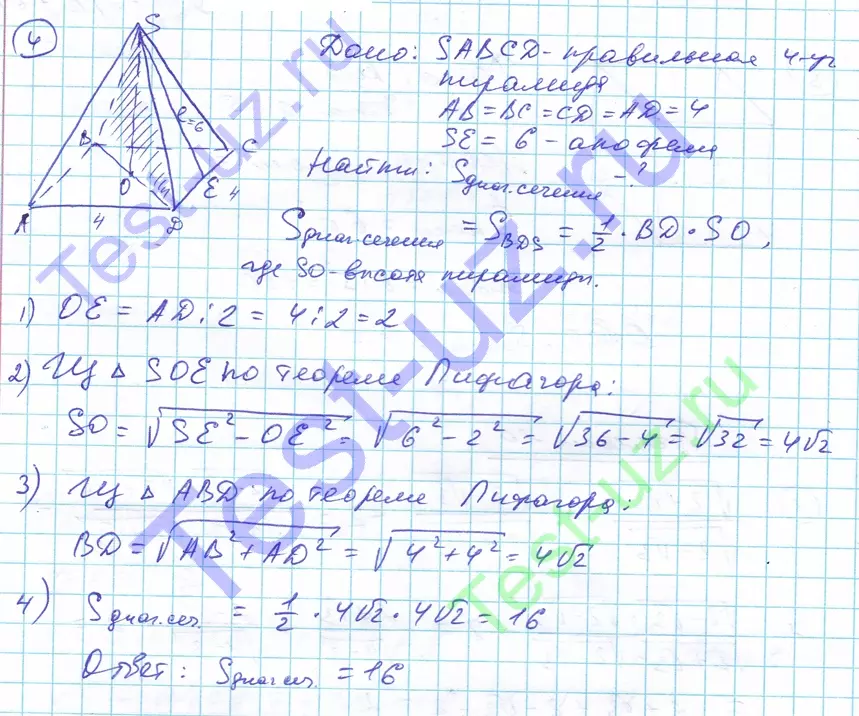 4
S
Дано: SABCD - правильная 4-уг
пирамида
AB = BC = CD = AD = 4
SE = 6 - апофема
Найти: Sдиаг.сечения - ?
l=6
B
C
O
E
4
A
4
D
Sдиаг.сечения = S_BDS = 1/2 · BD · SO,
где SO - высота пирамиды.
1) OE = AD : 2 = 4 : 2 = 2
2) Из △ SOE по теореме Пифагора:
SO = √(SE² - OE²) = √(6² - 2²) = √(36 - 4) = √32 = 4√2
3) Из △ ABD по теореме Пифагора:
BD = √(AB² + AD²) = √(4² + 4²) = 4√2
4) Sдиаг.сеч. = 1/2 · 4√2 · 4√2 = 16
Ответ: Sдиаг.сеч. = 16
Test-uz.ru
Test-uz.ru
Test-uz.ru